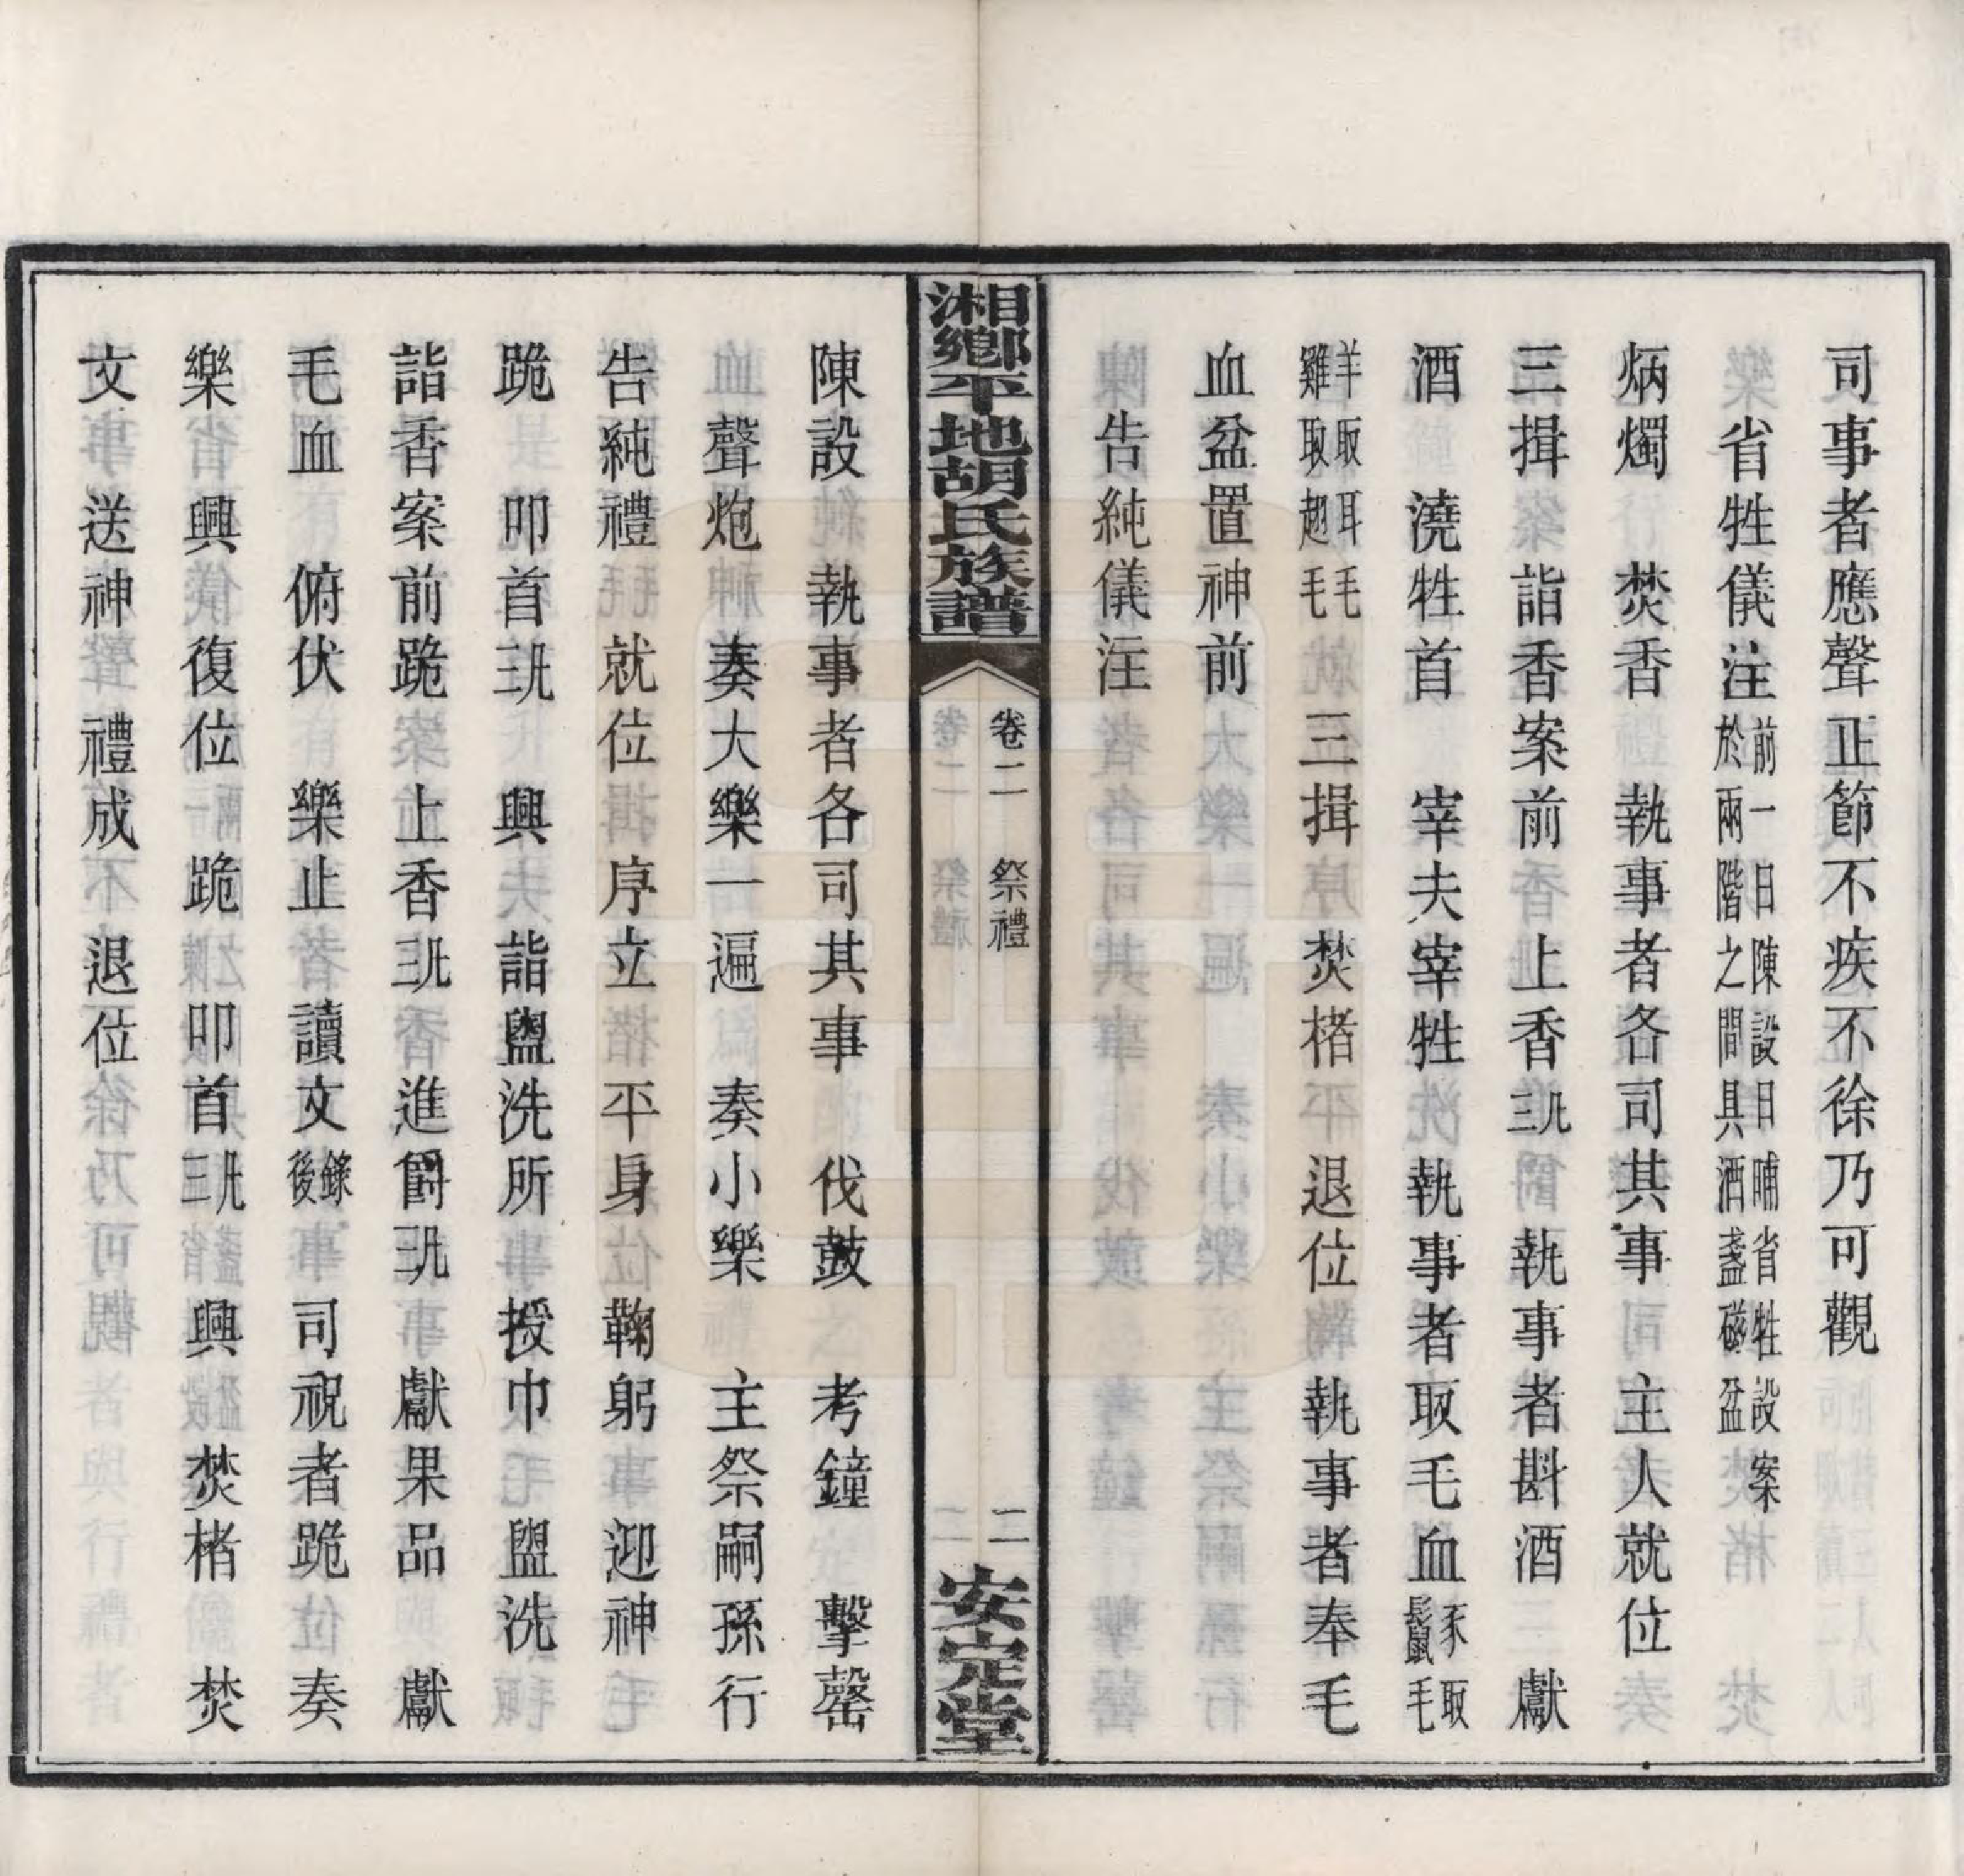 司事者應聲正節不疾不徐乃可觀
省牲儀注前一日陳設日晡省牲設案於兩階之間具酒盞磁盆
炳燭 焚香 執事者各司其事 主人就位
三揖 詣香案前 上香三 執事者斟酒 獻
酒 澆牲首 宰夫宰牲 執事者取毛血豕取鬃毛
羊取耳毛雞取翅毛 三揖 焚楮 退位 執事者奉毛
血盆置神前
告純儀注
湘鄉平地胡氏族譜 卷二 祭禮 二 安定堂
陳設 執事者各司其事 伐鼓 考鐘 擊罄
聲炮 奏大樂一遍 奏小樂 主祭嗣孫行
告純禮 就位 序立 平身 鞠躬 迎神
跪 叩首三 興 詣盥洗所 授巾 盥洗
詣香案前跪 上香三 進爵三 獻果品 獻
毛血 俯伏 樂止 讀文錄後 司祝者跪 奏
樂 興 復位 跪 叩首三 興 焚楮 焚
文 送神 禮成 退位